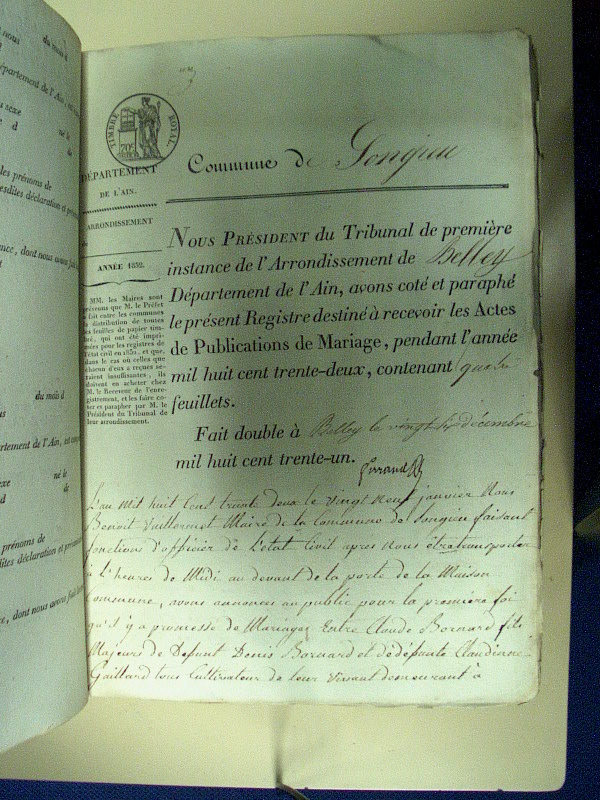 nous du mois d
épartement de l'Ain,
u sexe né le
d de
les prénoms de
esdites déclaration et présen
ence, dont nous avons fait
du mois d
artement de l'Ain, est
né le
d de
prénoms de
dites déclaration et présen
, dont nous avons fait
TIMBRE ROYAL
70
DÉPARTEMENT
DE L'AIN.
ARRONDISSEMENT
de
ANNÉE 1832.
MM. les Maires sont
prévenus que M. le Préfet
a fait entre les communes
la distribution de toutes
les feuilles de papier timbré,
qui ont été imprimées
pour les registres de
l'état civil en 1831, et que,
dans le cas où celles que
chacun d'eux a reçues seraient
insuffisantes, ils
doivent en acheter chez
M. le Receveur de l'enregistrement,
et les faire coter
et parapher par M. le
Président du Tribunal de
leur arrondissement.
Commune de Songieu
NOUS PRÉSIDENT du Tribunal de première
instance de l'Arrondissement de Belley
Département de l'Ain, avons coté et paraphé
le présent Registre destiné à recevoir les Actes
de Publications de Mariage, pendant l'année
mil huit cent trente-deux, contenant quatre
feuillets.
Fait double à Belley le vingt décembre
mil huit cent trente-un.
L'an Mil huit Cent trente deux le vingt neuf janvier Nous
Benoit Vuillermot Maire de la Commune de Songieu faisant
fonctions d'officier de L'état Civil apres Nous être transporter
à L'heures de Midi au devant de la porte de la Maison
Commune, avons annoncer au public pour la première foi
qu'il y a promesse de Mariages Entre Claude Bornard fils
Majeurs de Defunt Denis Bornard et de défunte Claudianne
Gaillard tous Cultivateur de leur vivant demeurant à